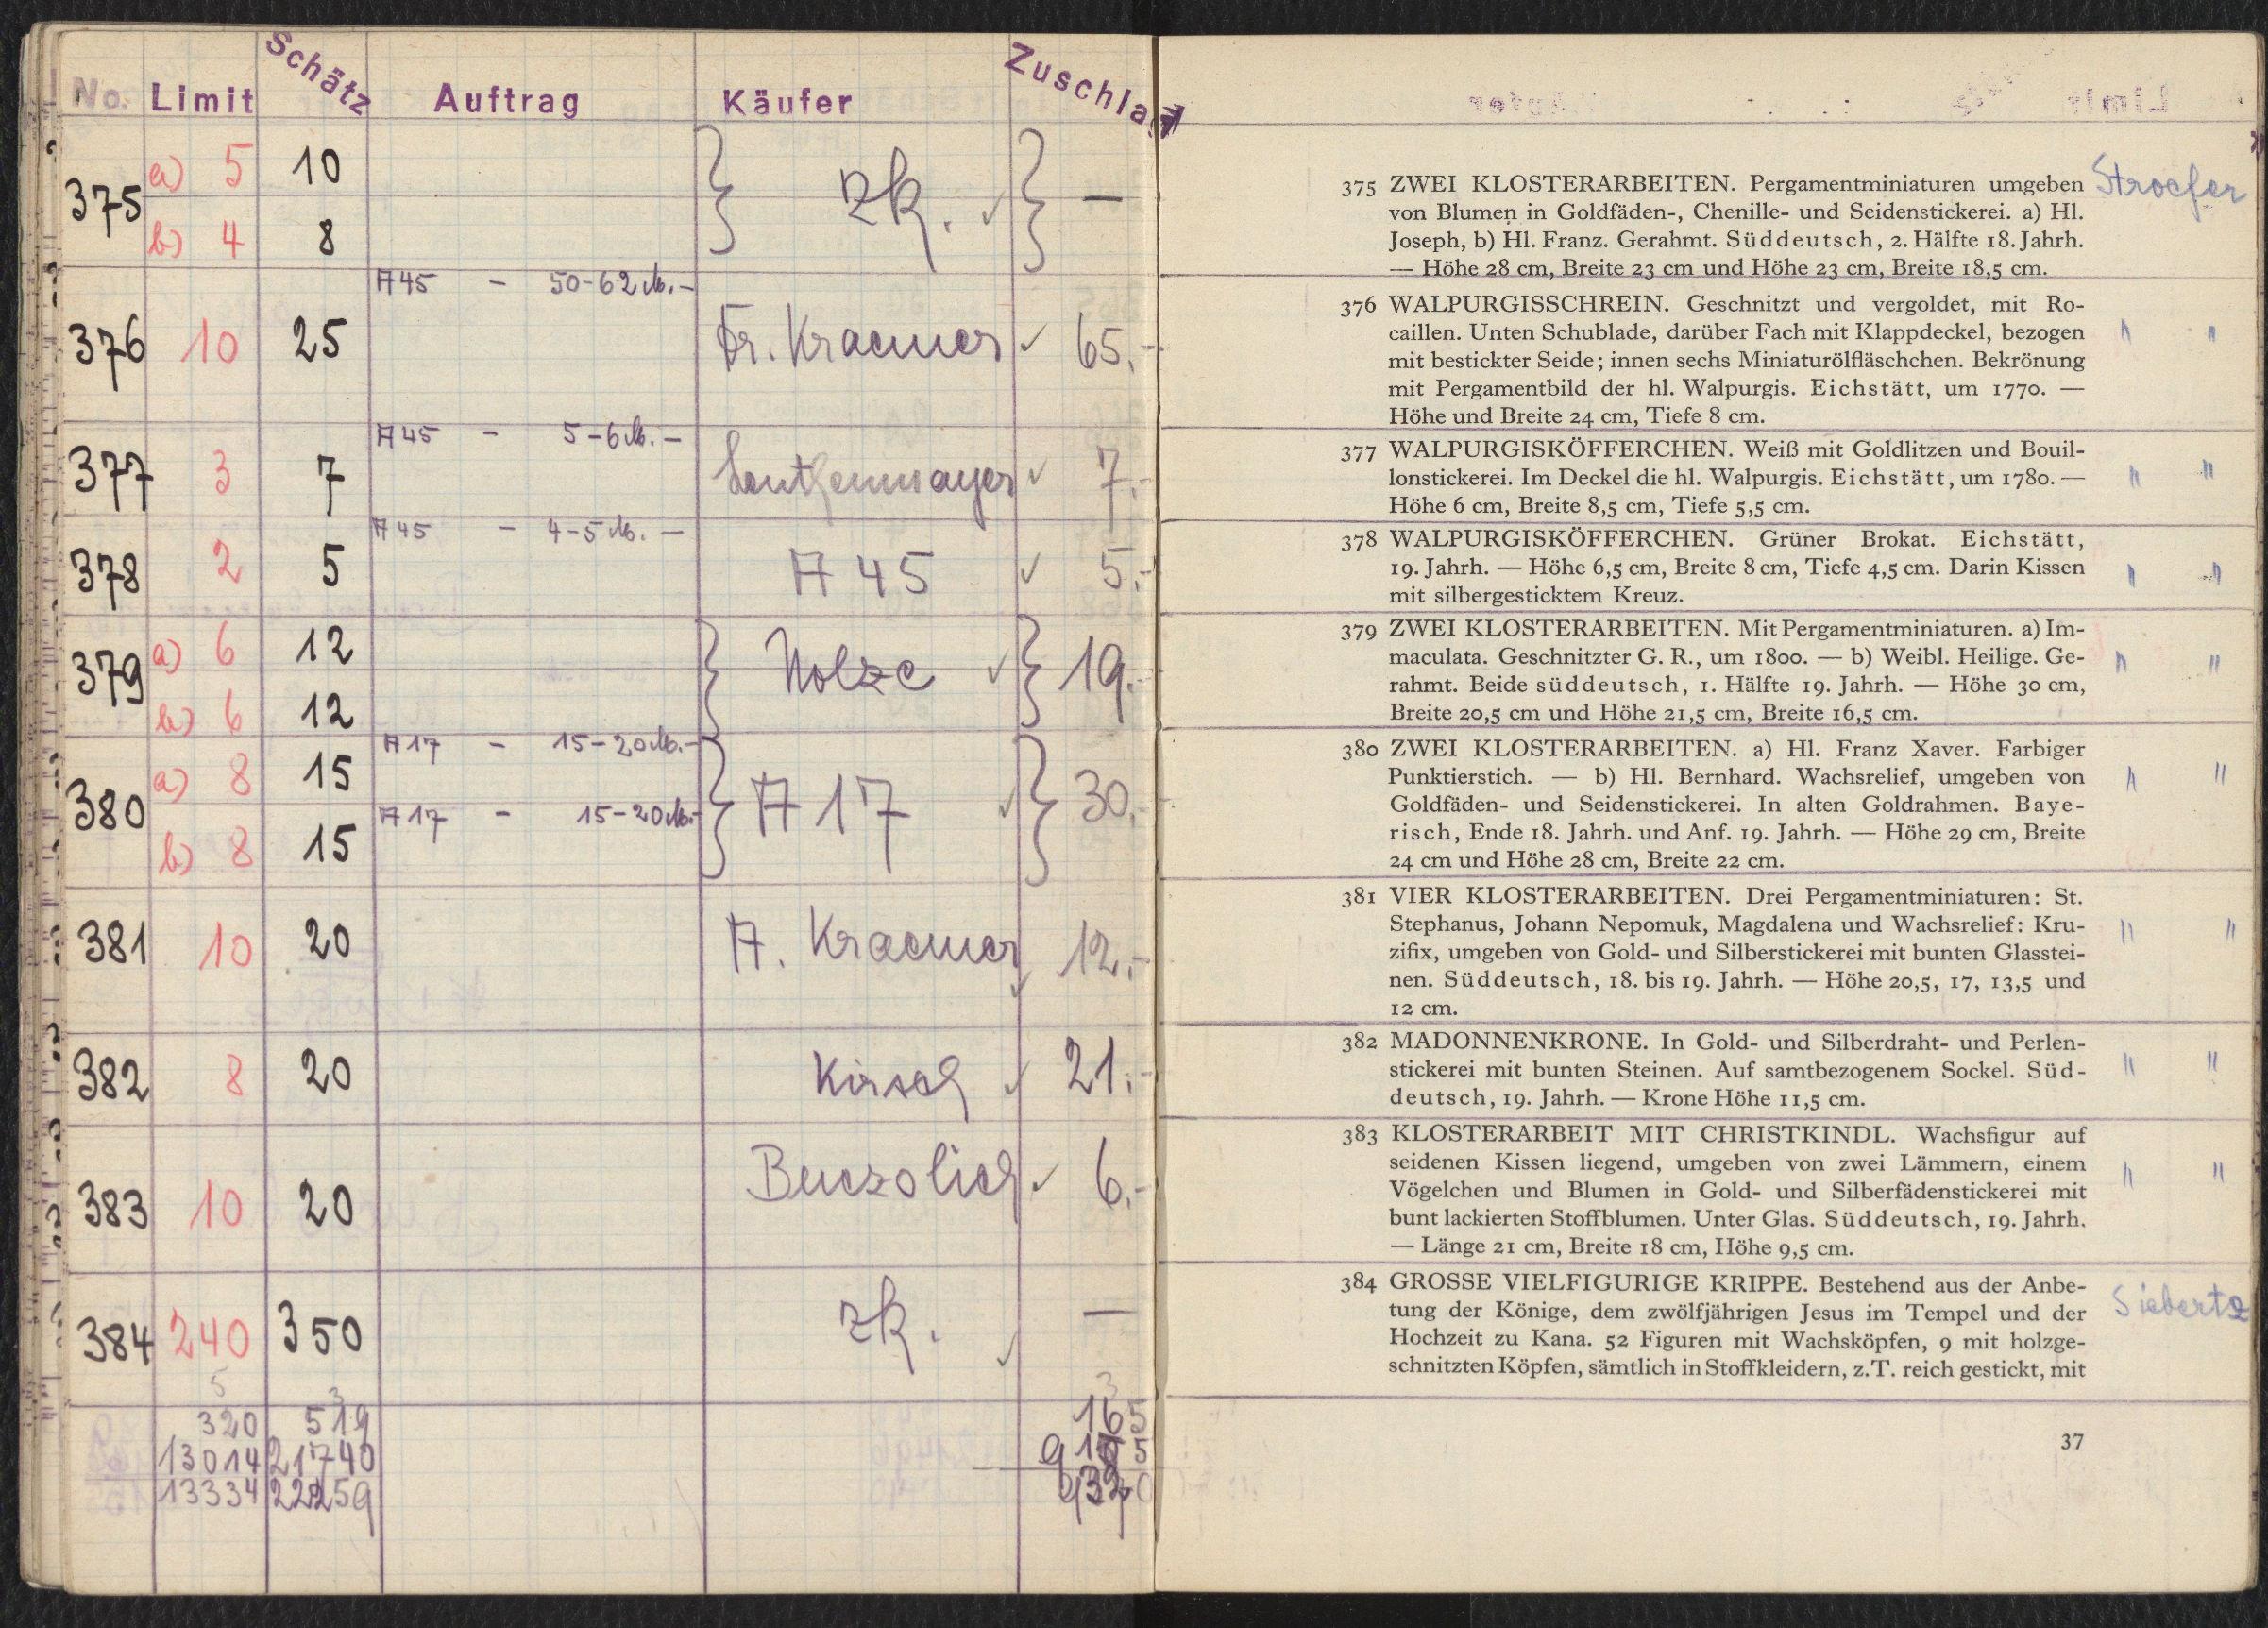 No. Limit Schätz Auftrag Käufer Zuschlag
375 a) 5 10 zk. ✓ —
b) 4 8
A 45 - 50-62 M. -
376 10 25 Fr. Kraemer ✓ 65.-
A 45 - 5-6 M. -
377 3 7 ✓ 7.-
A 45 - 4-5 M. -
378 2 5 A 45 ✓ 5.-
379 a) 6 12 Holze ✓ 19.-
b) 6 12
A 17 - 15-20 M. -
380 a) 8 15 A 17 ✓ 30.-
A 17 - 15-20 M. -
b) 8 15
381 10 20 A. Kraemer ✓ 12.-
382 8 20 Kirsch ✓ 21.-
383 10 20 Buczolich ✓ 6.-
384 240 350 zk. ✓ —
5 3 3
320 519 165
13014 21740
13334 22259
375 ZWEI KLOSTERARBEITEN. Pergamentminiaturen umgeben Stroefer
von Blumen in Goldfäden-, Chenille- und Seidenstickerei. a) Hl.
Joseph, b) Hl. Franz. Gerahmt. Süddeutsch, 2. Hälfte 18. Jahrh.
— Höhe 28 cm, Breite 23 cm und Höhe 23 cm, Breite 18,5 cm.
376 WALPURGISSCHREIN. Geschnitzt und vergoldet, mit Ro-
caillen. Unten Schublade, darüber Fach mit Klappdeckel, bezogen " "
mit bestickter Seide; innen sechs Miniaturölfläschchen. Bekrönung
mit Pergamentbild der hl. Walpurgis. Eichstätt, um 1770. —
Höhe und Breite 24 cm, Tiefe 8 cm.
377 WALPURGISKÖFFERCHEN. Weiß mit Goldlitzen und Bouil-
lonstickerei. Im Deckel die hl. Walpurgis. Eichstätt, um 1780. — " "
Höhe 6 cm, Breite 8,5 cm, Tiefe 5,5 cm.
378 WALPURGISKÖFFERCHEN. Grüner Brokat. Eichstätt,
19. Jahrh. — Höhe 6,5 cm, Breite 8 cm, Tiefe 4,5 cm. Darin Kissen " "
mit silbergesticktem Kreuz.
379 ZWEI KLOSTERARBEITEN. Mit Pergamentminiaturen. a) Im-
maculata. Geschnitzter G. R., um 1800. — b) Weibl. Heilige. Ge- " "
rahmt. Beide süddeutsch, 1. Hälfte 19. Jahrh. — Höhe 30 cm,
Breite 20,5 cm und Höhe 21,5 cm, Breite 16,5 cm.
380 ZWEI KLOSTERARBEITEN. a) Hl. Franz Xaver. Farbiger
Punktierstich. — b) Hl. Bernhard. Wachsrelief, umgeben von " "
Goldfäden- und Seidenstickerei. In alten Goldrahmen. Baye-
risch, Ende 18. Jahrh. und Anf. 19. Jahrh. — Höhe 29 cm, Breite
24 cm und Höhe 28 cm, Breite 22 cm.
381 VIER KLOSTERARBEITEN. Drei Pergamentminiaturen: St.
Stephanus, Johann Nepomuk, Magdalena und Wachsrelief: Kru- " "
zifix, umgeben von Gold- und Silberstickerei mit bunten Glasstei-
nen. Süddeutsch, 18. bis 19. Jahrh. — Höhe 20,5, 17, 13,5 und
12 cm.
382 MADONNENKRONE. In Gold- und Silberdraht- und Perlen-
stickerei mit bunten Steinen. Auf samtbezogenem Sockel. Süd- " "
deutsch, 19. Jahrh. — Krone Höhe 11,5 cm.
383 KLOSTERARBEIT MIT CHRISTKINDL. Wachsfigur auf
seidenen Kissen liegend, umgeben von zwei Lämmern, einem " "
Vögelchen und Blumen in Gold- und Silberfädenstickerei mit
bunt lackierten Stoffblumen. Unter Glas. Süddeutsch, 19. Jahrh.
— Länge 21 cm, Breite 18 cm, Höhe 9,5 cm.
384 GROSSE VIELFIGURIGE KRIPPE. Bestehend aus der Anbe- Siebertz
tung der Könige, dem zwölfjährigen Jesus im Tempel und der
Hochzeit zu Kana. 52 Figuren mit Wachsköpfen, 9 mit holzge-
schnitzten Köpfen, sämtlich in Stoffkleidern, z. T. reich gestickt, mit
37